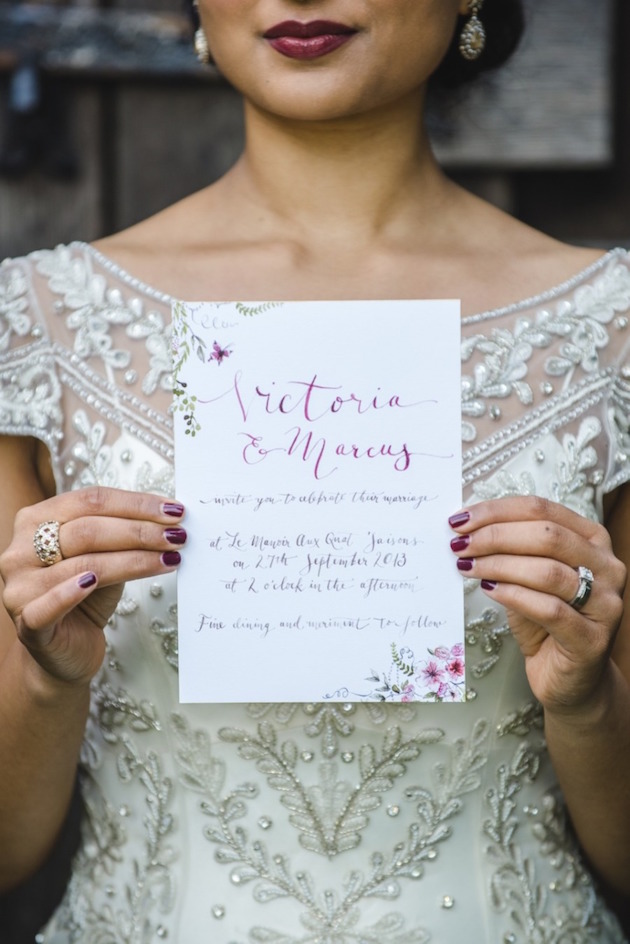 Victoria
& Marcus
invite you to celebrate their marriage
at Le Manoir Aux Quat 'Saisons
on 27th September 2013
at 2 o'clock in the afternoon
Fine dining and meriment to follow